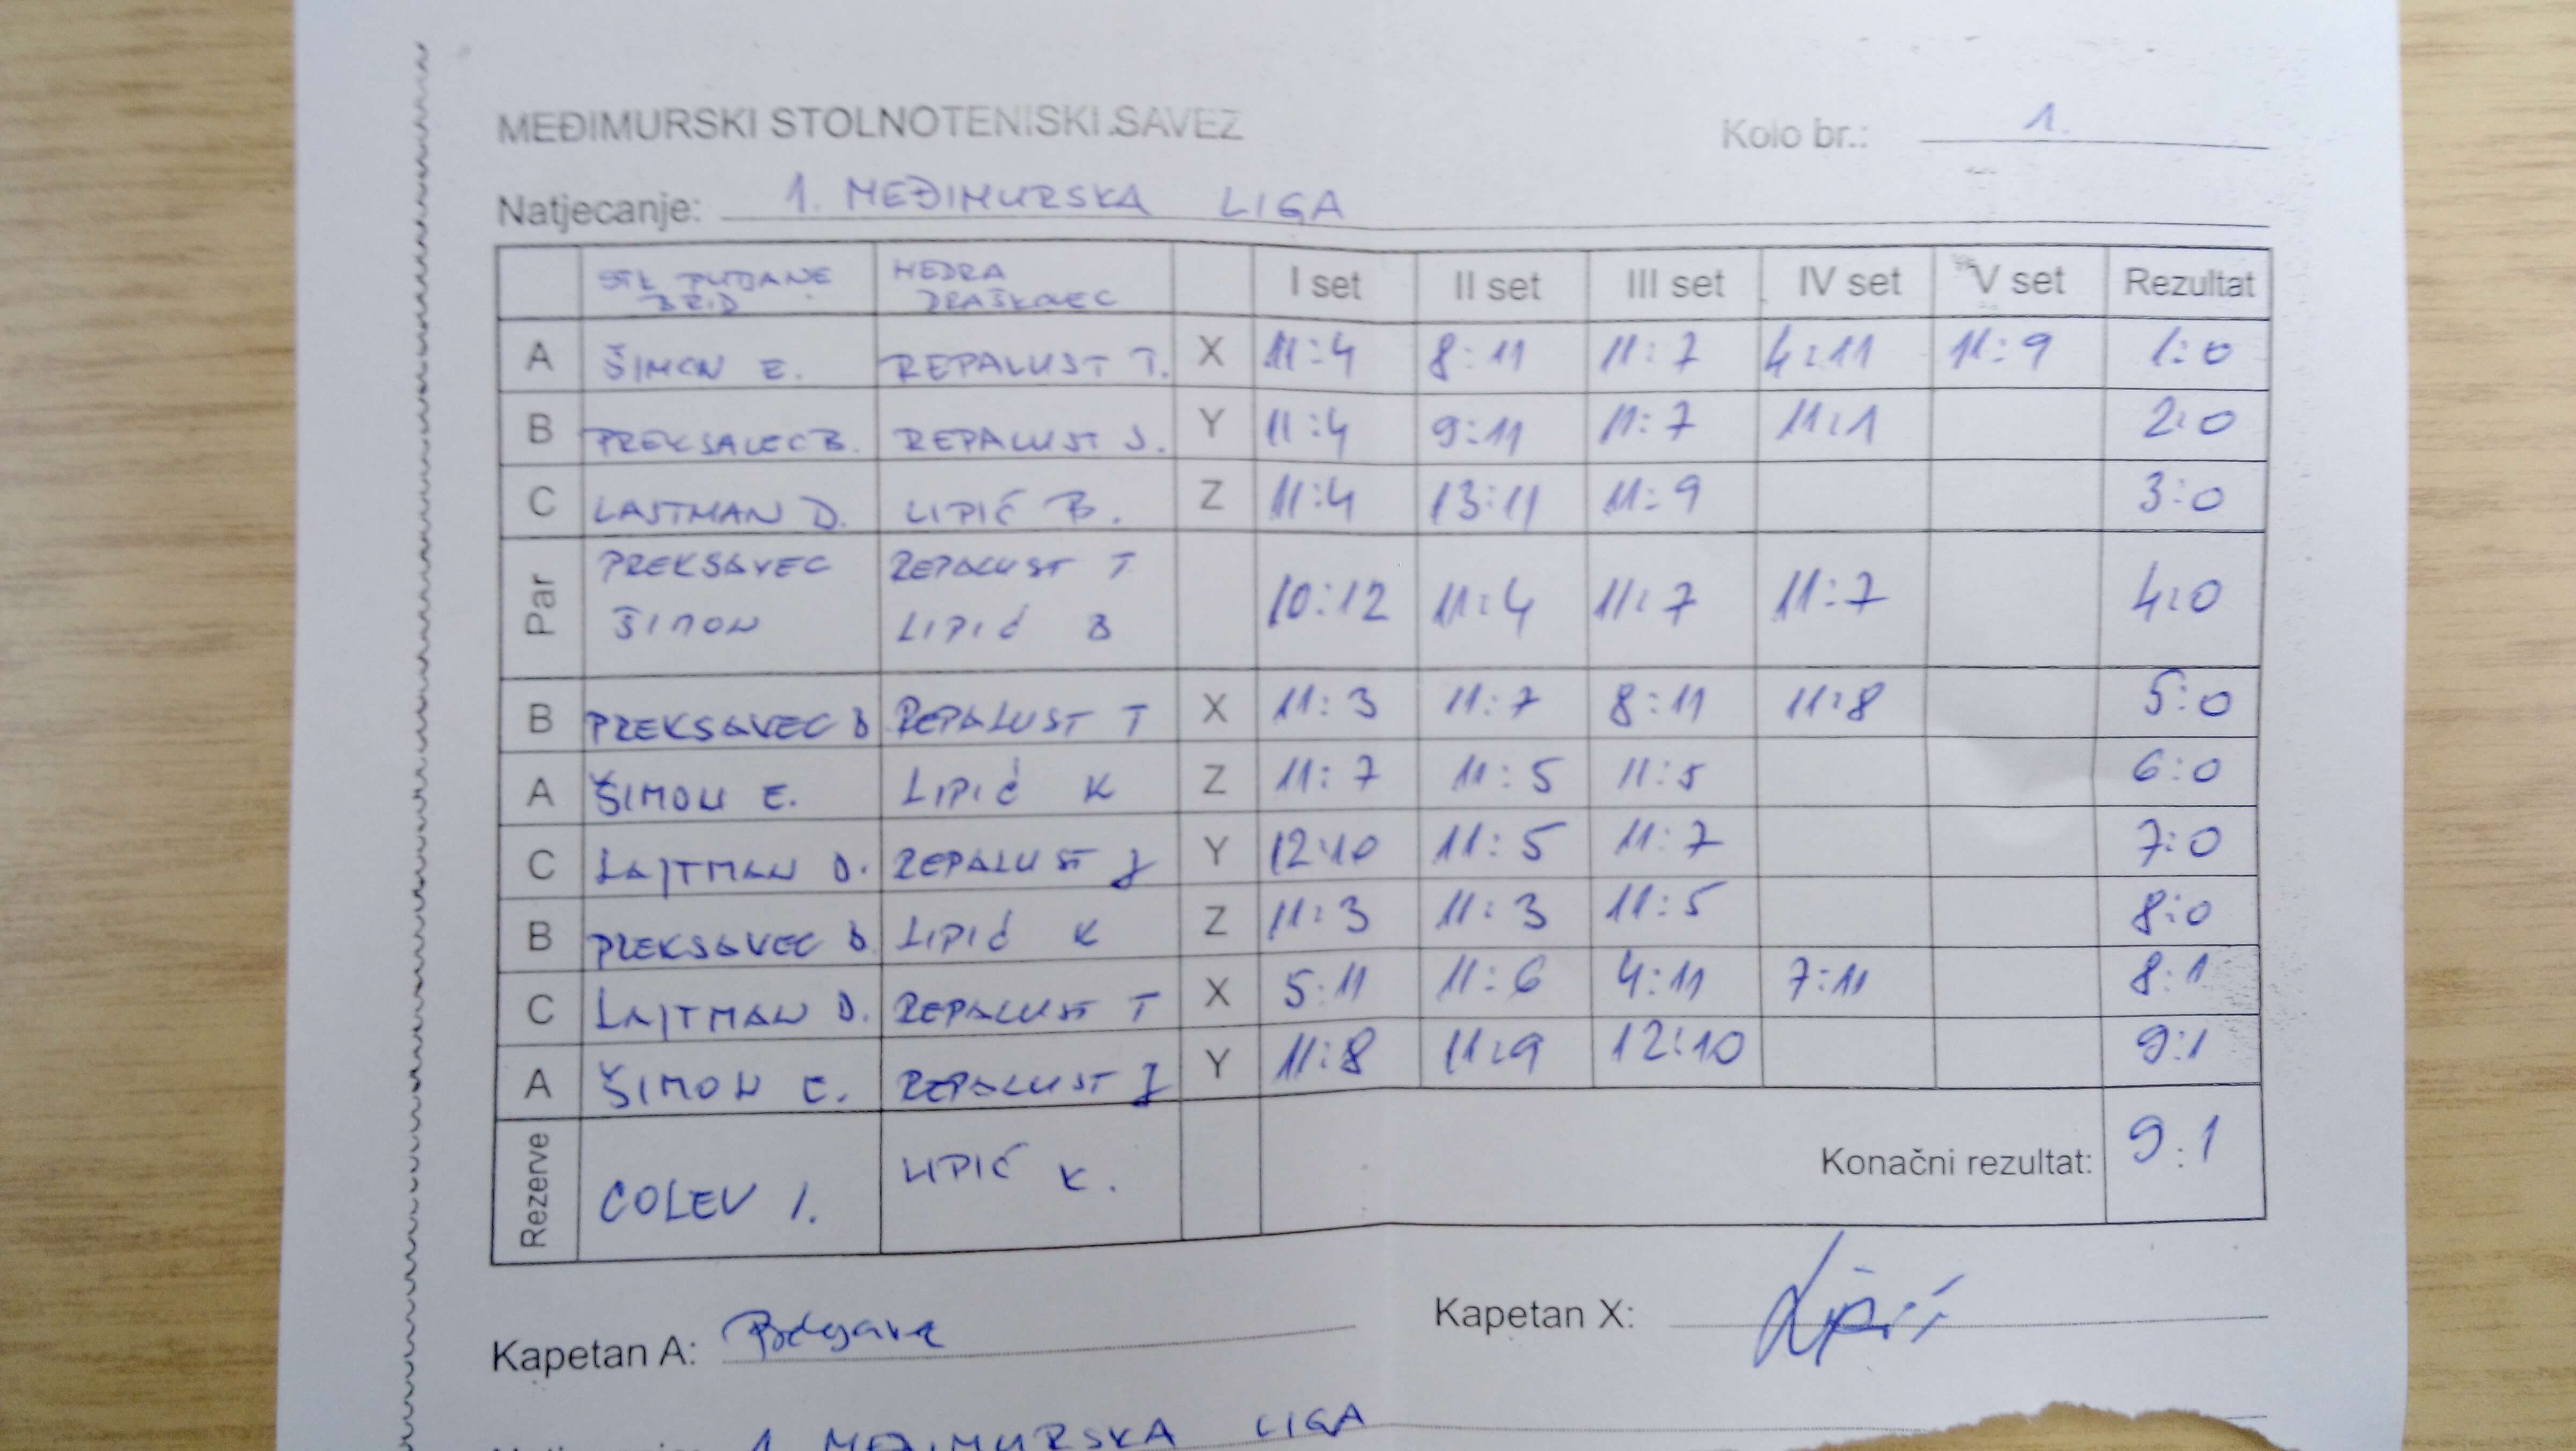 MEĐIMURSKI STOLNOTENISKI SAVEZ
Kolo br.: 1.
Natjecanje: 1. MEĐIMURSKA LIGA
STK HEDRA DRAŠKOVEC I set II set III set IV set V set Rezultat
A ŠIMON E. REPALUST T. X 11:4 8:11 11:7 4:11 11:9 1:0
B PREKSAVEC B. REPALUST J. Y 11:4 9:11 11:7 11:1 2:0
C LAJTMAN D. LIPIĆ B. Z 11:4 13:11 11:9 3:0
Par PREKSAVEC ŠIMON REPALUST T LIPIĆ B 10:12 11:4 11:7 11:7 4:0
B PREKSAVEC B REPALUST T X 11:3 11:7 8:11 11:8 5:0
A ŠIMON E. LIPIĆ K Z 11:7 11:5 11:5 6:0
C LAJTMAN D. REPALUST J Y 12:10 11:5 11:7 7:0
B PREKSAVEC B. LIPIĆ K Z 11:3 11:3 11:5 8:0
C LAJTMAN D. REPALUST T X 5:11 11:6 4:11 7:11 8:1
A ŠIMON E. REPALUST J Y 11:8 11:9 12:10 9:1
Rezerve COLEV I. LIPIĆ K. Konačni rezultat: 9:1
Kapetan A:
Kapetan X: Lipić
1. MEĐIMURSKA LIGA